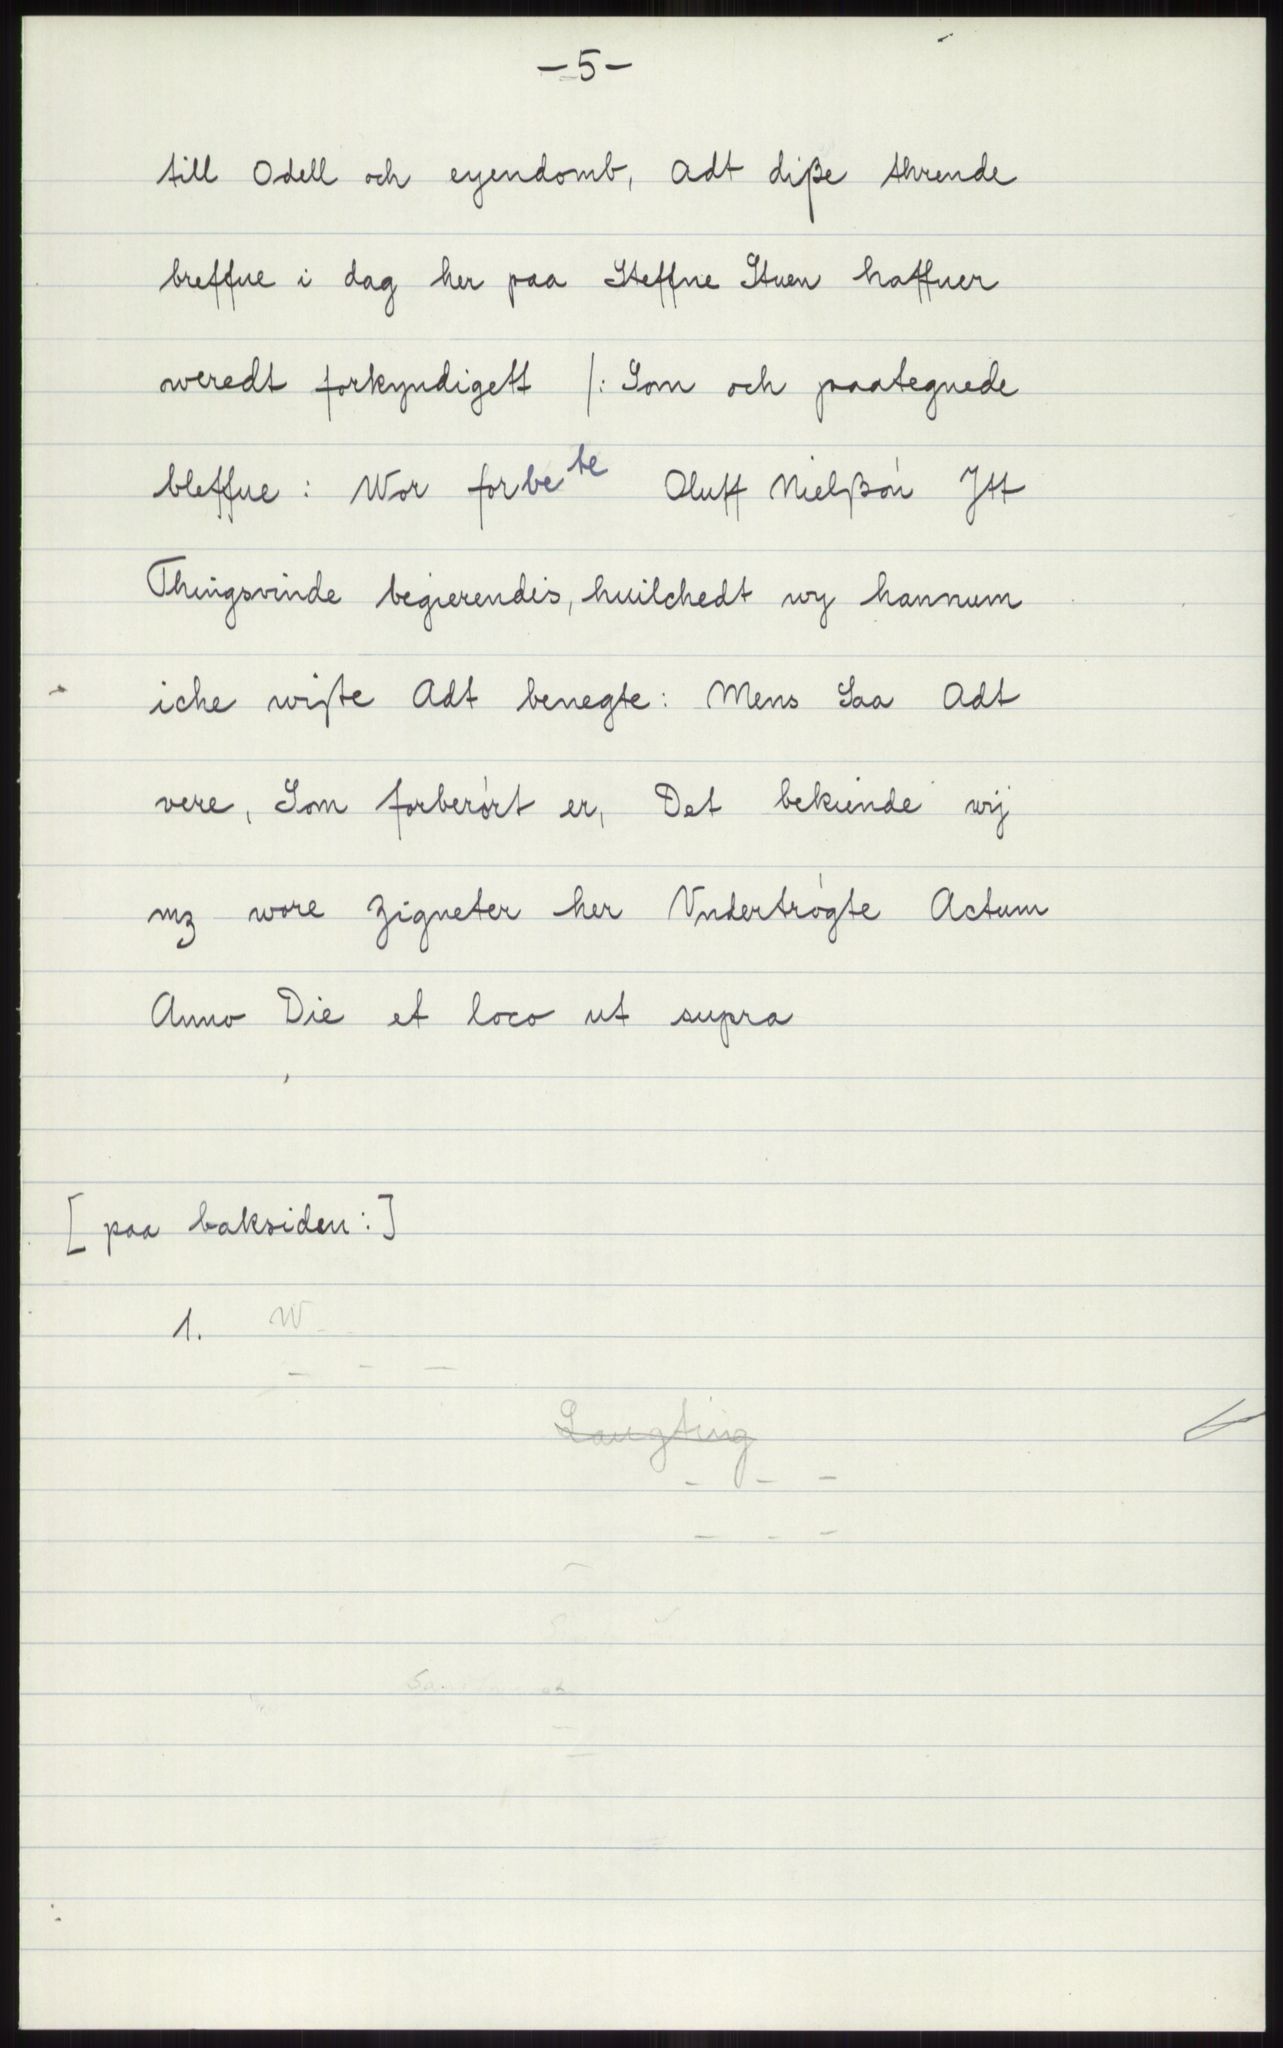 -5-
till Odell och eyendomb, Adt diße thrende
breffue i dag her paa Steffne Stuen haffuer
weredt forkyndigett /: Som och paategnede
bleffue : Wor forbete Oluff Nielßøn Itt
Thingsvinde begierendis, huilchedt wy hannum
iche wiste Adt benegte: Mens Saa Adt
vere, Som forberørt er, Det bekiende wij
mz wore Zigneter her Vndertrøgte Actum
Anno Die et loco ut supra
[ paa baksiden : ]
1. W
Laugting